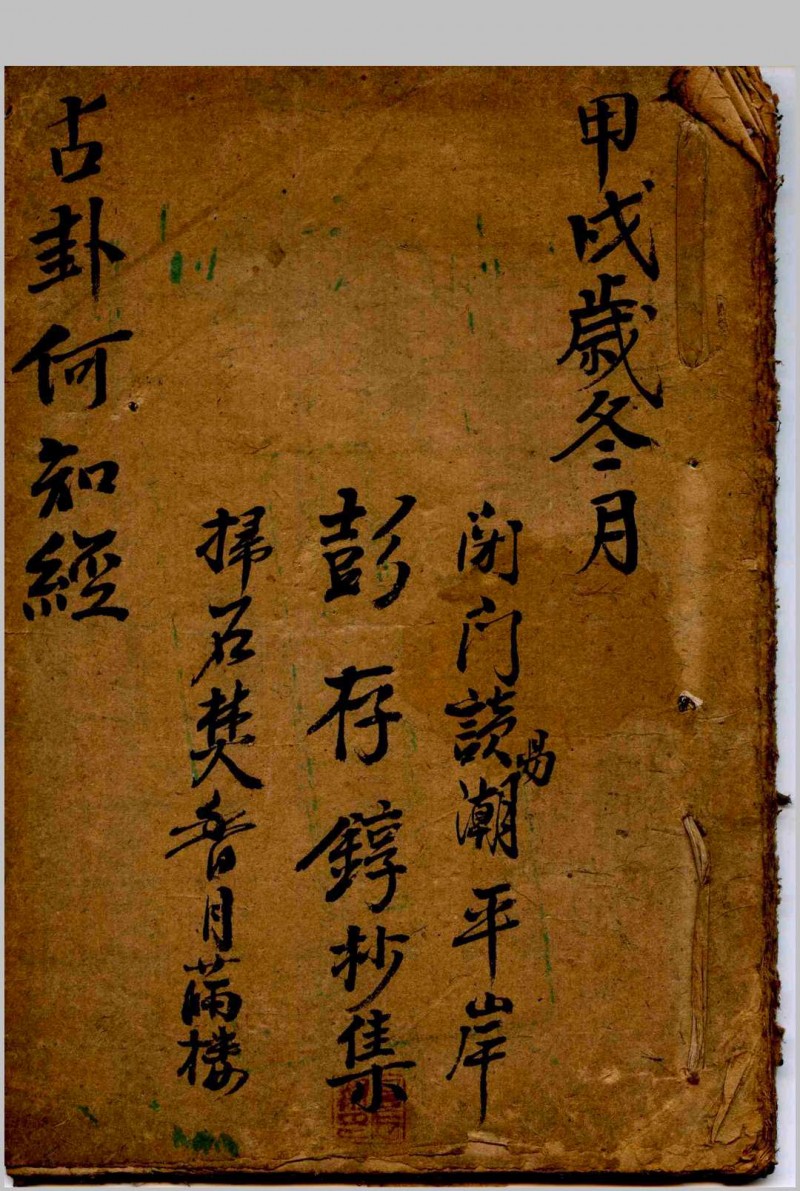 甲戌歲冬月
閉門讀易潮平岸
彭存錞抄集
掃石焚香月滿楼
占卦何知經